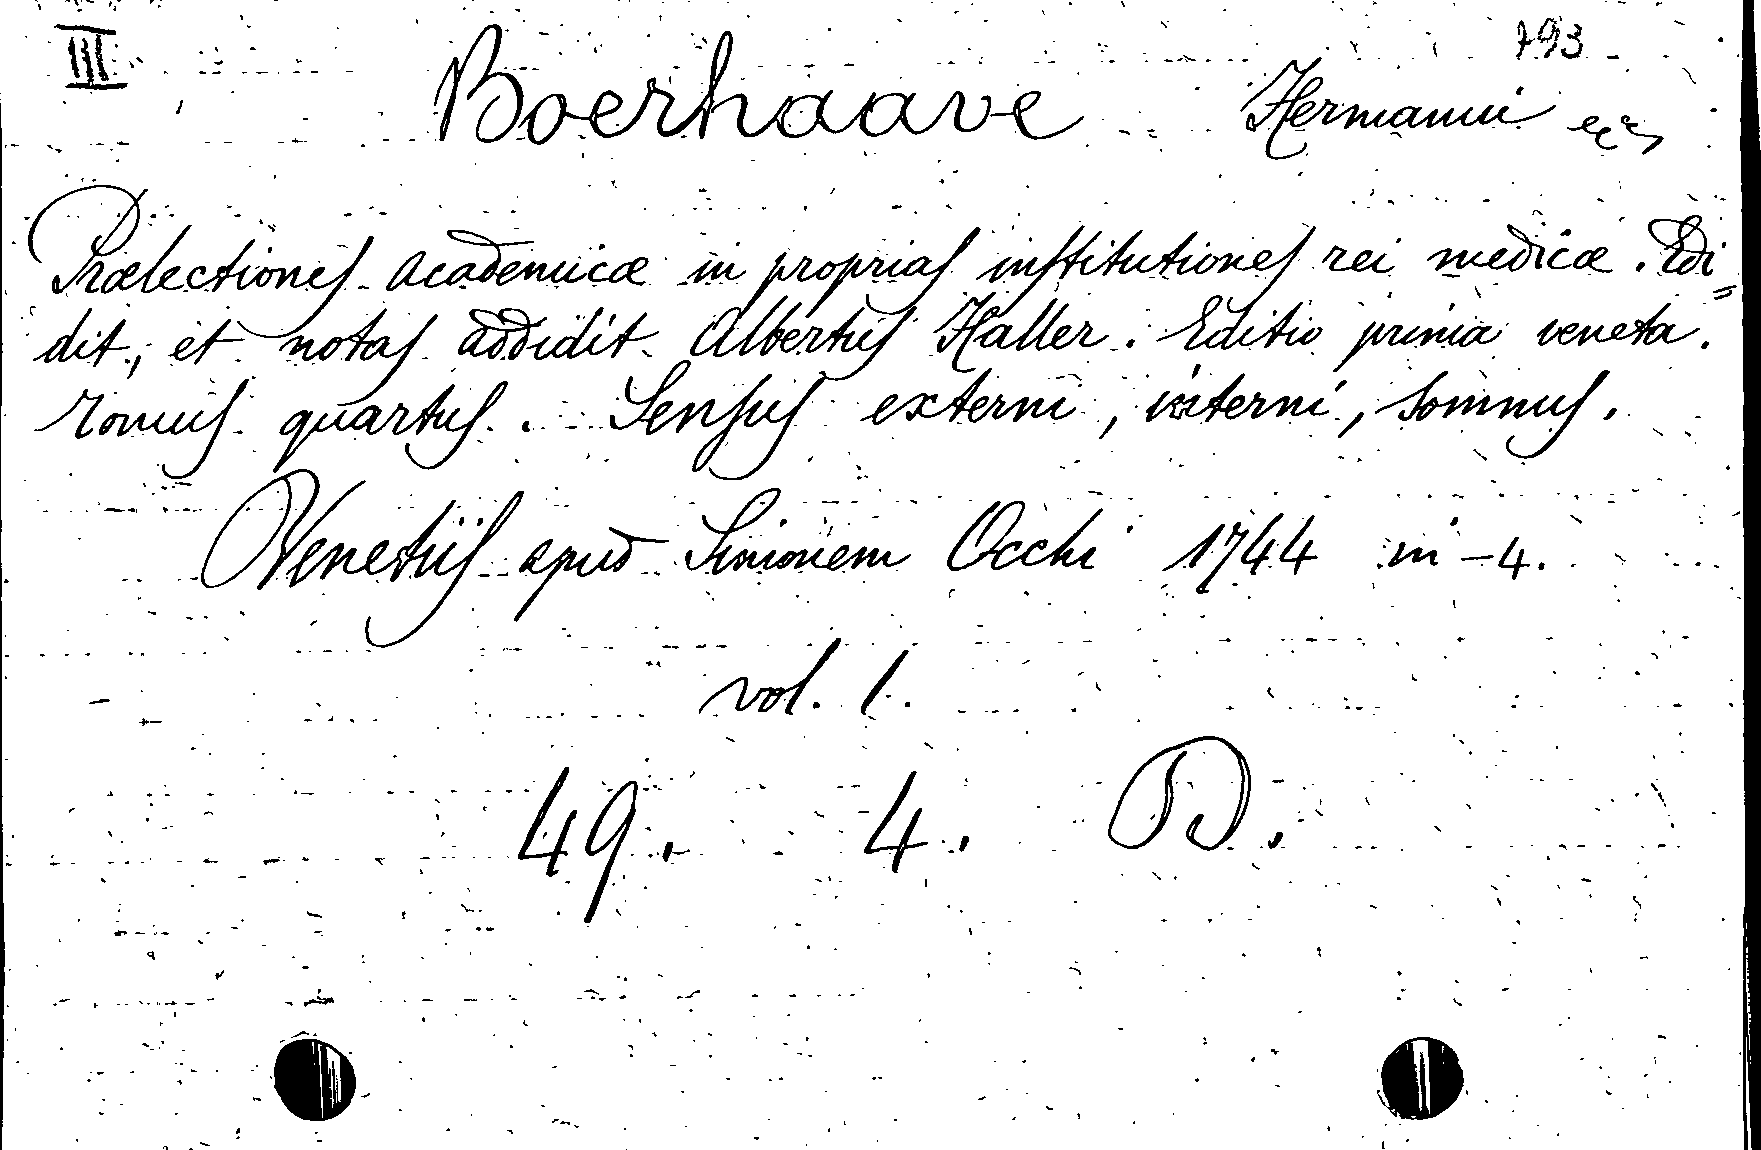 III 793
Boerhaave Hermanni
Prælectiones academicæ in proprias institutiones rei medicæ. Edi=
dit, et notas addidit Albertus Haller. Editio prima veneta.
Tomus quartus. Sensus externi, interni, somnus.
Venetiis apud Simonem Occhi 1744 in-4.
vol. 1.
49. 4. D.